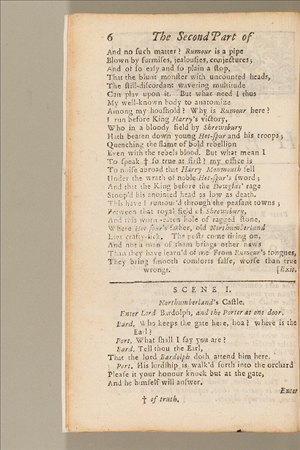 6 The Second Part of
And no such matter? Rumour is a pipe
Blown by surmises, jealousies, conjectures;
And of so easy and so plain a stop,
That the blunt monster with uncounted heads,
The still-discordant wavering multitude
Can play upon it. But what need I thus
My well-known body to anatomize
Among my houshold? Why is Rumour here?
I run before King Harry's victory,
Who in a bloody field by Shrewsbury
Hath beaten down young Hot-spur and his troops;
Quenching the flame of bold rebellion
Even with the rebels blood. But what mean I
To speak † so true at first? my office is
To noise abroad that Harry Monmouth fell
Under the wrath of noble Hot-spur's sword;
And that the King before the Dowglas' rage
Stoop'd his anointed head as low as death.
This have I rumour'd through the peasant towns,
Between that royal field of Shrewsbury,
And this worm-eaten hole of ragged stone,
Where Hot-spur's father, old Northumberland
Lies crafty-sick. The posts come tiring on,
And not a man of them brings other news
Than they have learn'd of me. From Rumour's tongues,
They bring smooth comforts false, worse than true
wrongs. [Exit.
SCENE I.
Northumberland's Castle.
Enter Lord Bardolph, and the Porter at one door.
Bard. Who keeps the gate here, hoa? where is the
Earl?
Port. What shall I say you are?
Bard. Tell thou the Earl,
That the lord Bardolph doth attend him here.
Port. His lordship is walk'd forth into the orchard
Please it your honour knock but at the gate,
And he himself will answer.
Enter
† of truth.